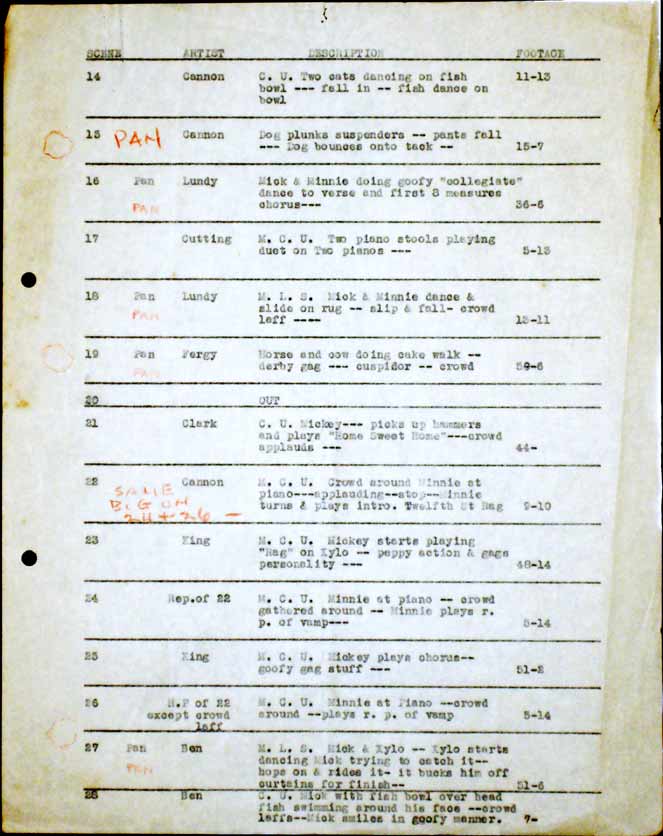 SCENE ARTIST DESCRIPTION FOOTAGE
14 Cannon C. U. Two cats dancing on fish 11-13
bowl --- fall in -- fish dance on
bowl
15 PAN Cannon Dog plunks suspenders -- pants fall
--- Dog bounces onto tack -- 15-7
16 Pan Lundy Mick & Minnie doing goofy "collegiate"
PAN dance to verse and first 8 measures
chorus--- 36-6
17 Cutting M. C. U. Two piano stools playing
duet on Two pianos --- 5-13
18 Pan Lundy M. L. S. Mick & Minnie dance &
PAN slide on rug -- slip & fall- crowd
laff ---- 13-11
19 Pan Fergy Horse and cow doing cake walk --
PAN derby gag --- cuspidor -- crowd 59-6
20 OUT
21 Clark C. U. Mickey--- picks up hammers
and plays "Home Sweet Home"---crowd
applauds --- 44-
22 Cannon M. C. U. Crowd around Minnie at
SAME piano---applauding--stop--Minnie
BG ON turns & plays intro. Twelfth St Rag 9-10
24 + 26 -
23 King M. C. U. Mickey starts playing
"Rag" on Xylo -- peppy action & gags
personality --- 48-14
24 Rep.of 22 M. C. U. Minnie at piano -- crowd
gathered around -- Minnie plays r.
p. of vamp--- 5-14
25 King M. C. U. Mickey plays chorus--
goofy gag stuff --- 51-2
26 R.P of 22 M. C. U. Minnie at Piano --crowd
except crowd around --plays r. p. of vamp 5-14
laff
27 Pan Ben M. L. S. Mick & Xylo -- Xylo starts
PAN dancing Mick trying to catch it--
hops on & rides it- it bucks him off
curtains for finish-- 51-6
28 Ben C. U. Mick with fish bowl over head
fish swimming around his face --crowd
laffs--Mick smiles in goofy manner. 7-